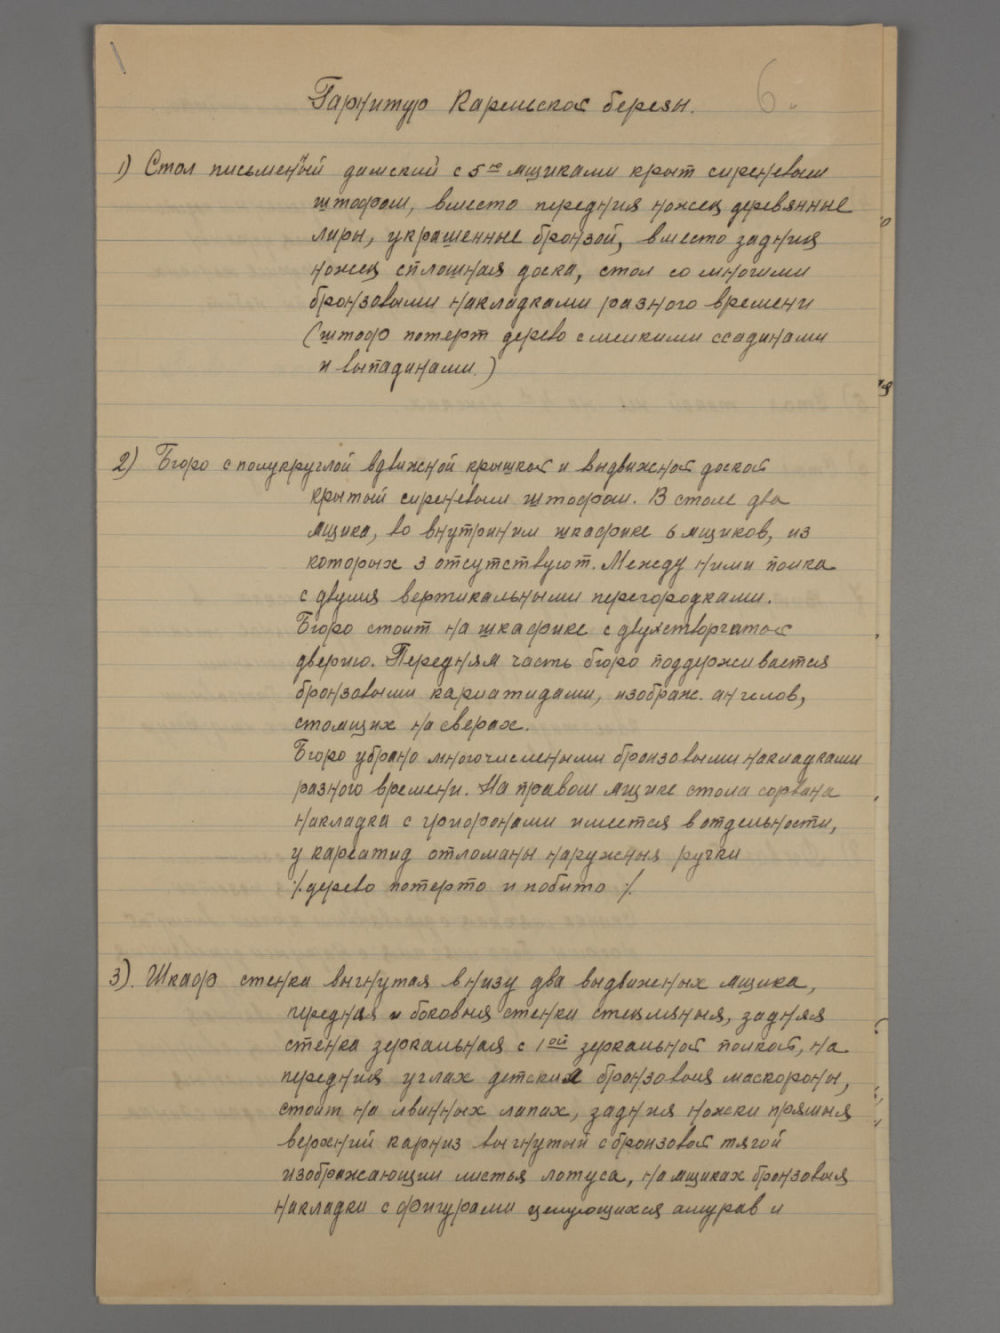 6.
Гарнитур Карельской березы.
1) Стол письменный дамский с 5ю ящиками крыт сиреневым
штофом, вместо передния ножек деревянные
лиры, украшенные бронзой, вместо задния
ножек сплошная доска, стол со многими
бронзовыми накладками разного времени
(штоф потерт дерево с мелкими ссадинами
и выпадинами.)
2) Бюро с полукруглой вдвижной крышкой и выдвижной доской
крытый сиреневым штофом. В столе два
ящика, во внутрином шкафике 6 ящиков, из
которых 3 отсутствуют. Между ними полка
с двумя вертикальными перегородками.
Бюро стоит на шкафике с двухстворчатой
дверию. Передняя часть бюро поддерживается
бронзовыми кариатидами, изображ. ангелов,
стоящих на сферах.
Бюро убрано многочислеными бронзовыми накладками
разного времени. На правом ящике стола сорвана
накладка с грифонами имеется в отдельности,
у кареатид отломаны наружныя ручки
/. дерево потерто и побито /.
3). Шкаф стенка выгнутая внизу два выдвиженых ящика,
передняя и боковыя стенки стеклянныя, задняя
стенка зеркальная с 1ой зеркальной полкой, на
передния углах детския бронзовыя маскороны,
стоит на львинных лапах, задния ножки прямыя
верхний карниз выгнутый с бронзовой тягой
изображающим листья лотуса, на ящиках бронзовыя
накладки с фигурами целующихся амурав и